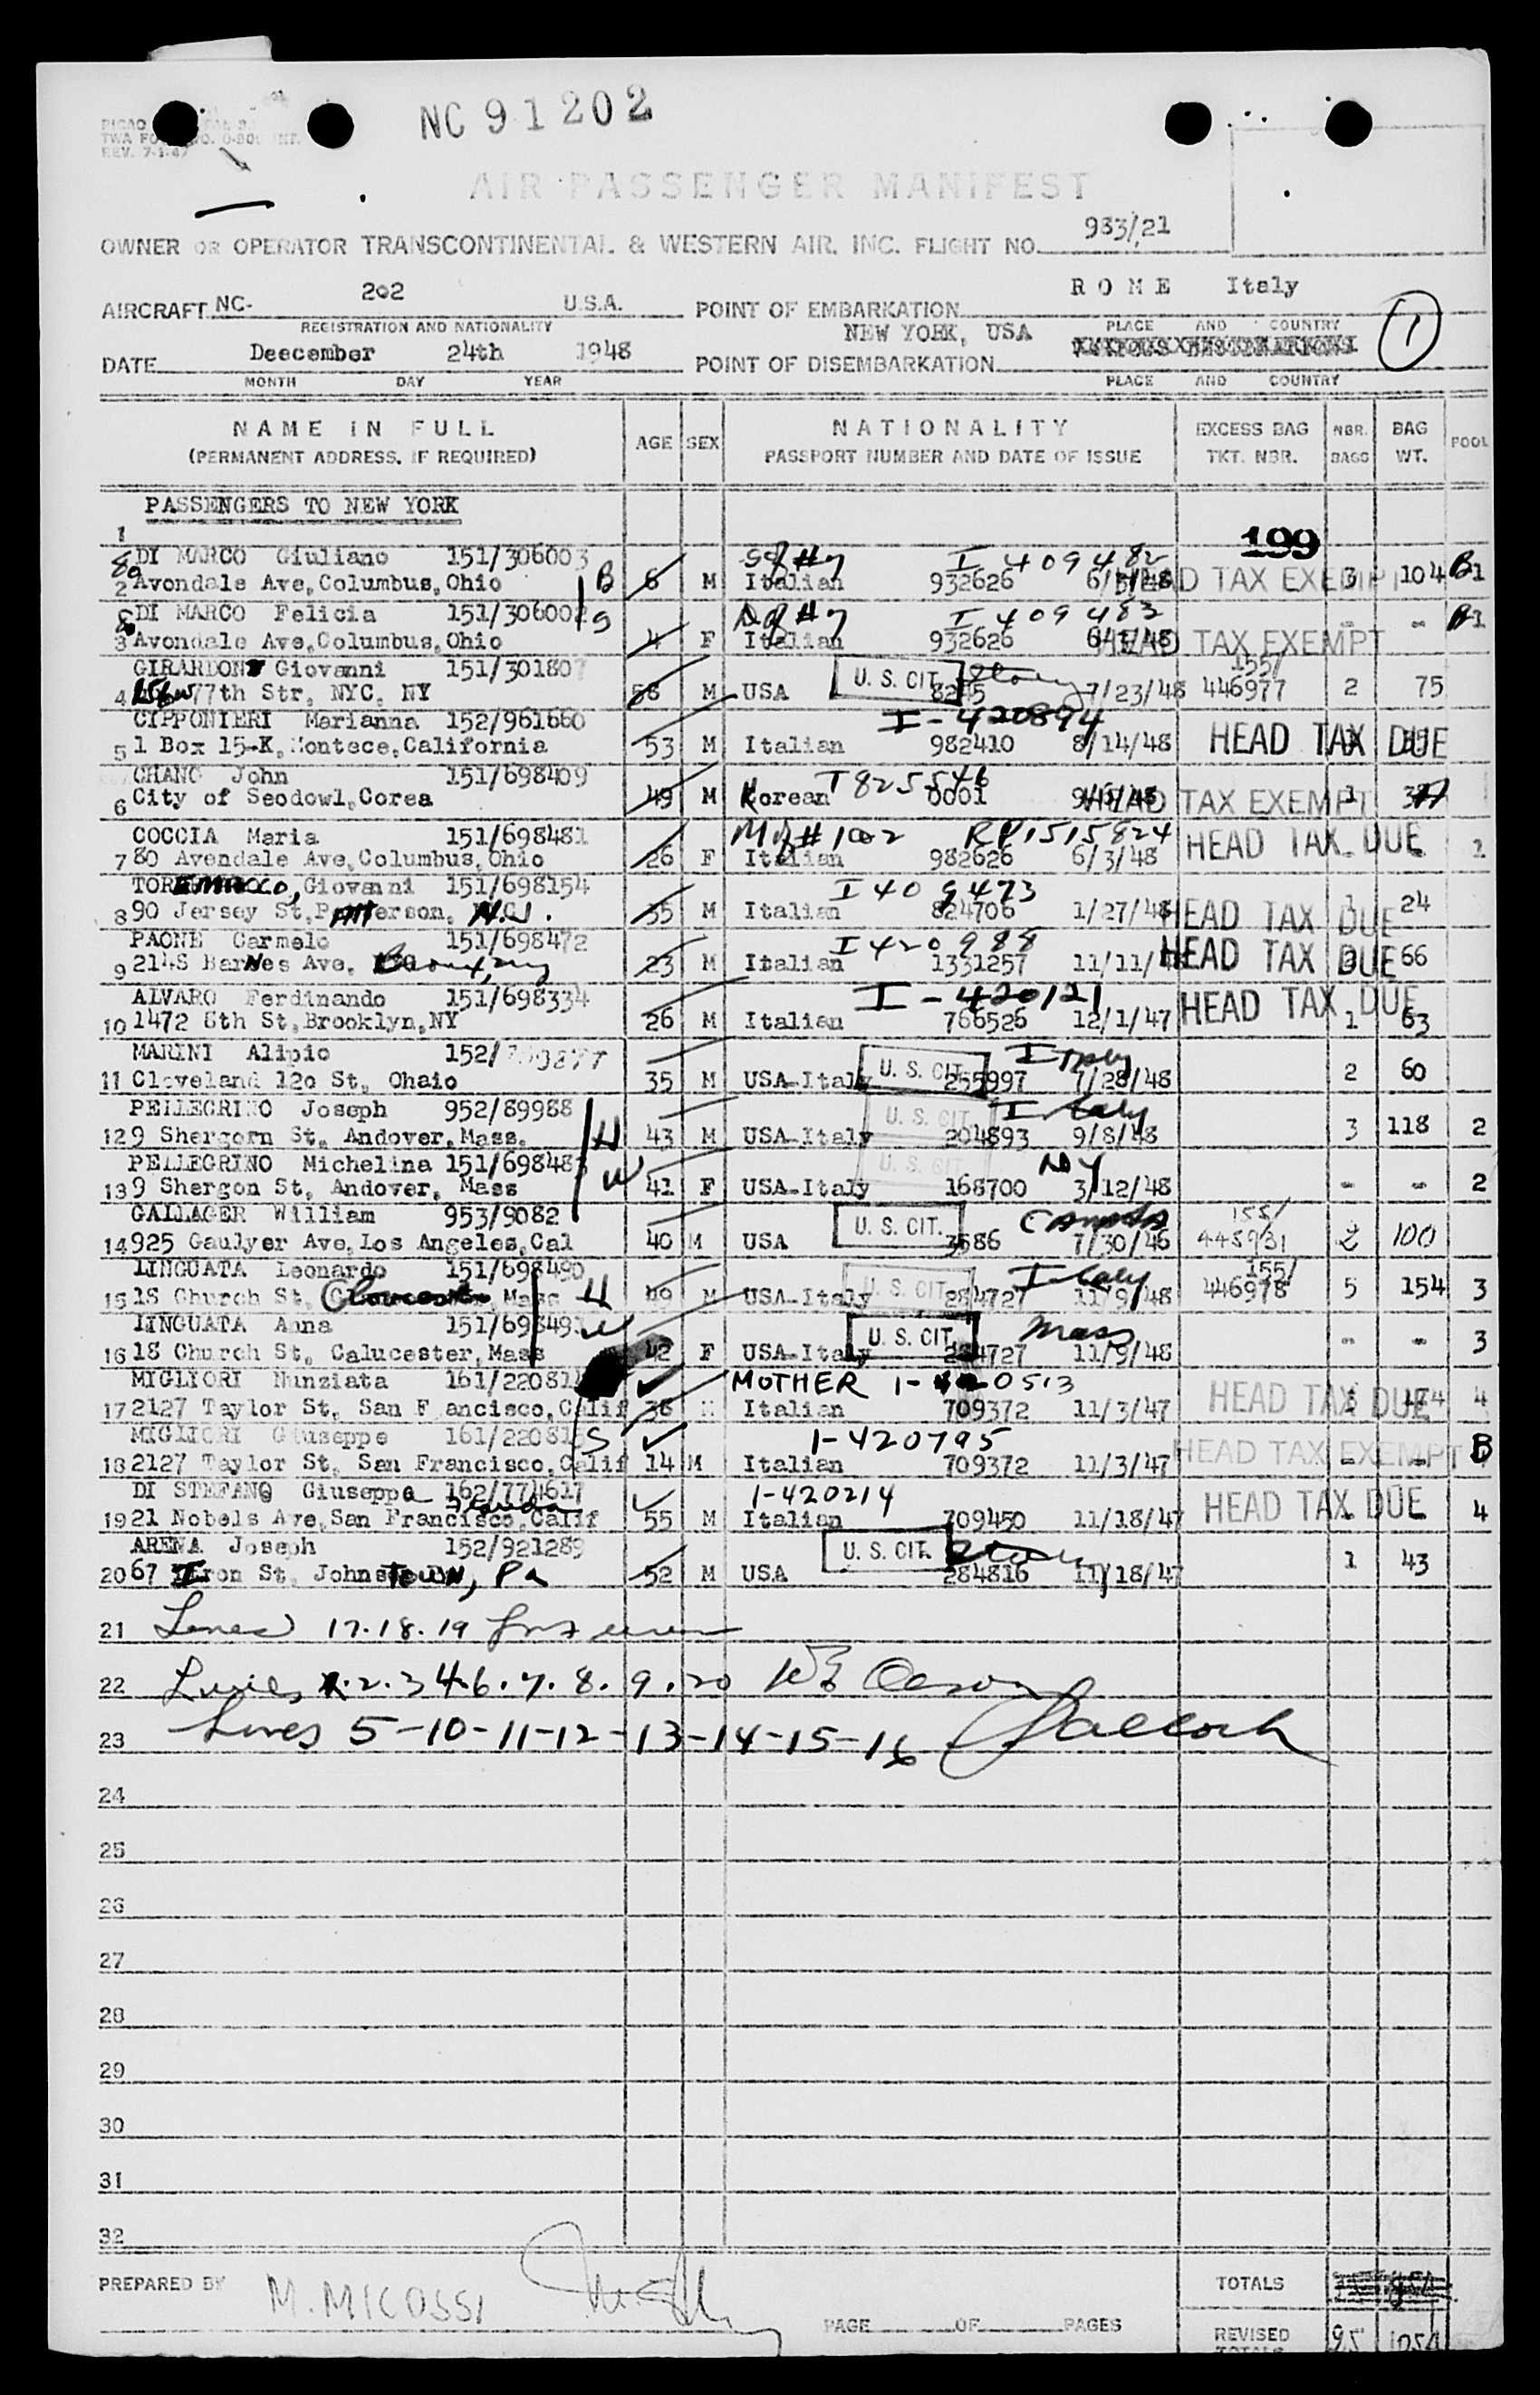 NC 91202
REV. 7-1-47
AIR PASSENGER MANIFEST
OWNER OR OPERATOR TRANSCONTINENTAL & WESTERN AIR, INC. FLIGHT NO. 933/21
AIRCRAFT NC- 202 U.S.A. POINT OF EMBARKATION ROME Italy
REGISTRATION AND NATIONALITY PLACE AND COUNTRY
1
DATE Deecember 24th 1948 POINT OF DISEMBARKATION NEW YORK, USA
MONTH DAY YEAR PLACE AND COUNTRY
NAME IN FULL AGE SEX NATIONALITY EXCESS BAG NBR. BAG POOL
(PERMANENT ADDRESS, IF REQUIRED) PASSPORT NUMBER AND DATE OF ISSUE TKT. NBR. BAGS WT.
PASSENGERS TO NEW YORK
1 199
DI MARCO Giuliano 151/306003 I 409482
2 80 Avondale Ave,Columbus,Ohio B 6 M Italian 932626 HEAD TAX EXEMPT 3 104 B1
DI MARCO Felicia 151/306002 I 409483
3 80 Avondale Ave,Columbus,Ohio S 4 F Italian 932626 HEAD TAX EXEMPT - - B1
GIRARDON Giovanni 151/301807 U. S. CIT. 155/
4 77th Str, NYC, NY 58 M USA 7/23/48 446977 2 75
CIPPONIERI Marianna 152/961660 I-420894
5 1 Box 15-K,Montece,California 53 M Italian 982410 8/14/48 HEAD TAX DUE
CHANG John 151/698409 T825546
6 City of Seodowl,Corea 49 M Korean 0001 HEAD TAX EXEMPT 1
COCCIA Maria 151/698481 RP1515824
7 80 Avendale Ave,Columbus,Ohio 26 F Italian 982626 6/3/48 HEAD TAX DUE - -
Giovanni 151/698154 I 409473
8 90 Jersey St,Patterson, N.J. 35 M Italian 824706 1/27/48 HEAD TAX DUE 1 24
PAONE Carmelo 151/698472 I 420988
9 2148 Barnes Ave, Bronx, NY 23 M Italian 1331257 11/11/ HEAD TAX DUE 66
ALVARO Ferdinando 151/698334 I-420121
10 1472 8th St,Brooklyn,NY 26 M Italian 766526 12/1/47 HEAD TAX DUE 1 63
MARINI Alipio 152/ U. S. CIT. Italy
11 Cleveland 120 St, Ohaio 35 M USA-Italy 255997 7/28/48 2 60
PELLEGRINO Joseph 952/89988 U. S. CIT. Italy
12 9 Shergorn St, Andover,Mass. H 43 M USA-Italy 204893 9/8/48 3 118 2
PELLEGRINO Michelina 151/698483 U. S. CIT. NY
13 9 Shergon St, Andover, Mass W 41 F USA-Italy 168700 3/12/48 - - 2
GALLAGER William 953/9082 U. S. CIT. Canada 155/
14 925 Gaulyer Ave,Los Angeles,Cal 40 M USA 3586 7/30/46 448931 2 100
LINGUATA Leonardo 151/698490 U. S. CIT. Italy 155/
15 18 Church St, Gloucester, Mass H 49 M USA-Italy 284727 11/9/48 446978 5 154 3
LINGUATA Anna 151/698491 W U. S. CIT. Mass
16 18 Church St, Calucester,Mass 42 F USA-Italy 284727 11/9/48 - - 3
MIGLIORI Nunziata 161/220814 MOTHER I-420513
17 2127 Taylor St, San F ancisco,Calif 38 Italian 709372 11/3/47 HEAD TAX DUE 174 4
MIGLIORI Giuseppe 161/220815 S I-420795
18 2127 Taylor St, San Francisco,Calif 14 M Italian 709372 11/3/47 HEAD TAX EXEMPT B
DI STEFANO Giuseppe 162/774617 I-420214
19 21 Nobels Ave,San Francisco,Calif 55 M Italian 709450 11/18/47 HEAD TAX DUE 4
ARENA Joseph 152/921289 U. S. CIT.
20 67 Iron St, Johnstown, Pa 52 M USA 284816 11/18/47 1 43
21 Lines 17.18.19
22 Lines 2.3 4.6.7.8.9.20
23 Lines 5-10-11-12-13-14-15-16
24
25
26
27
28
29
30
31
32
PREPARED BY M. MICOSSI TOTALS
PAGE OF PAGES REVISED TOTALS